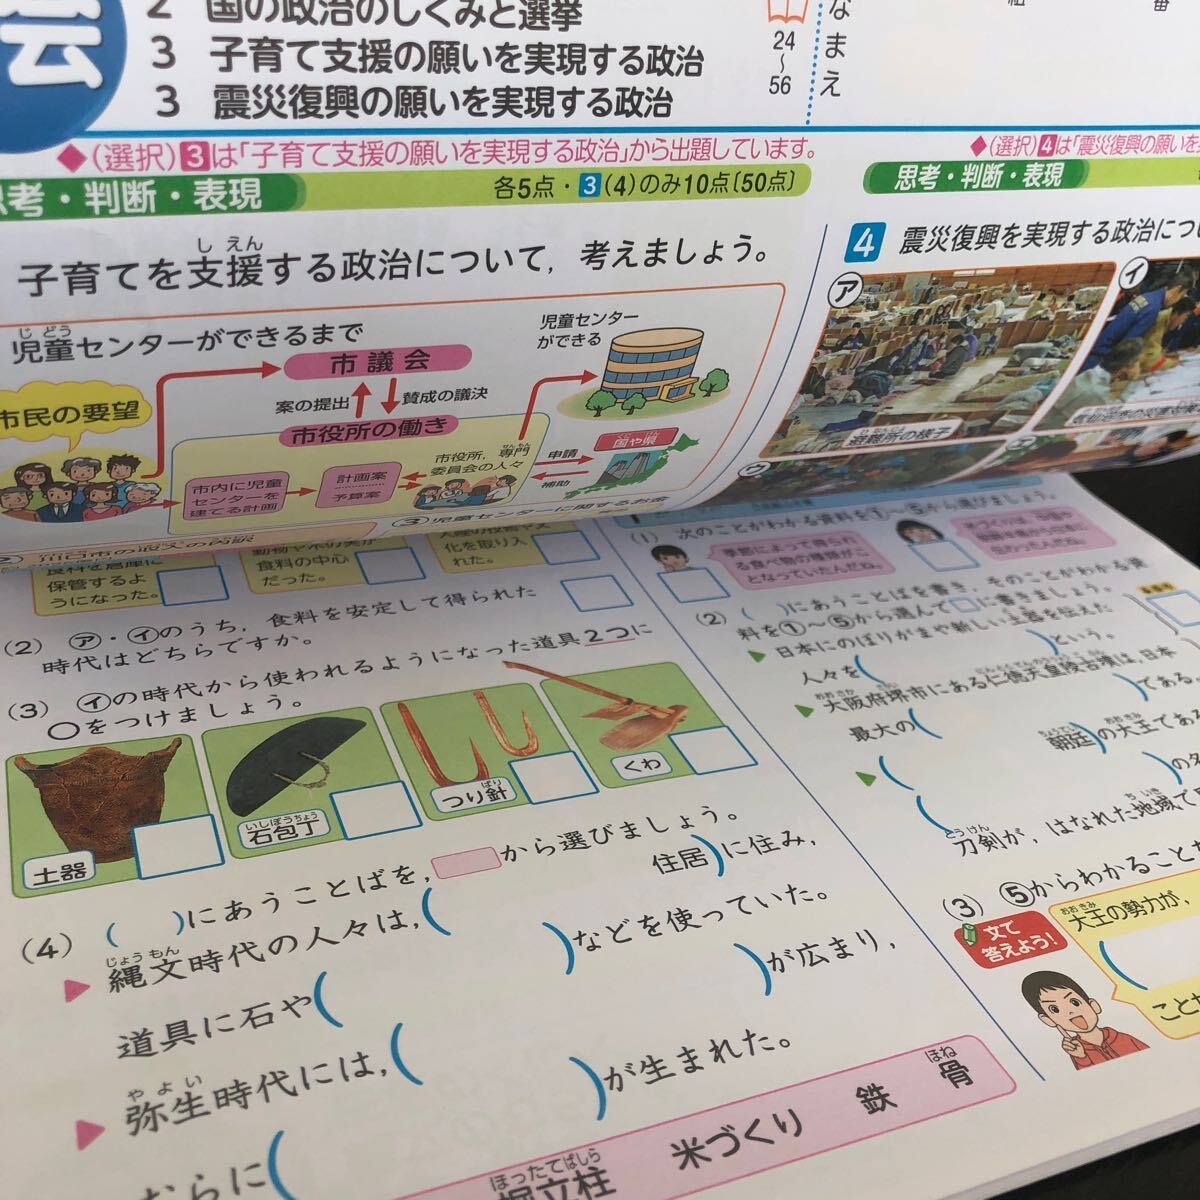 会
2 国の政治のしくみと選挙
3 子育て支援の願いを実現する政治
3 震災復興の願いを実現する政治
24
〜
56
なまえ
組
番
◆(選択)3は「子育て支援の願いを実現する政治」から出題しています。
◆(選択)4は「震災復興の願いを
思考・判断・表現
各5点・3(4)のみ10点〔50点〕
思考・判断・表現
し えん
子育てを支援する政治について，考えましょう。
4 震災復興を実現する政治につい
じ どう
児童センターができるまで
市民の要望
市議会
案の提出
賛成の議決
市役所の働き
児童センター
ができる
市内に児童
センターを
建てる計画
計画案
予算案
せんもん
市役所，専門
委員会の人々
申請
補助
国や県
③児童センターに関するお金
ア
イ
ひ なんじょ
避難所の様子
保管するよ
うになった。
食料の中心
だった。
化を取り入
れた。
(2) ア・イのうち，食料を安定して得られた
時代はどちらですか。
(3) イの時代から使われるようになった道具2つに
○をつけましょう。
土器
いしぼうちょう
石包丁
ばり
つり針
くわ
(4) ( )にあうことばを， から選びましょう。
じょうもん
縄文時代の人々は，( 住居)に住み，
道具に石や( )などを使っていた。
やよい
弥生時代には，( )が広まり，
むらに( )が生まれた。
ほったてばしら
掘立柱 米づくり 鉄 骨
ほね
(1) 次のことがわかる資料を①〜⑤から選びましょう。
季節によって得られ
る食べ物の種類がこ
となっていたんだね。
(2) ( )にあうことばを書き，そのことがわかる資
料を①〜⑤から選んで□に書きましょう。
日本にのぼりがまや新しい土器を伝えた
人々を( )という。
おおさか
大阪府堺市にある仁徳天皇陵古墳は，日本
最大の( )である。
( 朝廷)の大王である
( )の名
とうけん
( 刀剣が，はなれた地域で
ちいき
(3) ⑤からわかることを
文で
答えよう！
おおきみ
大王の勢力が，
( 
こと